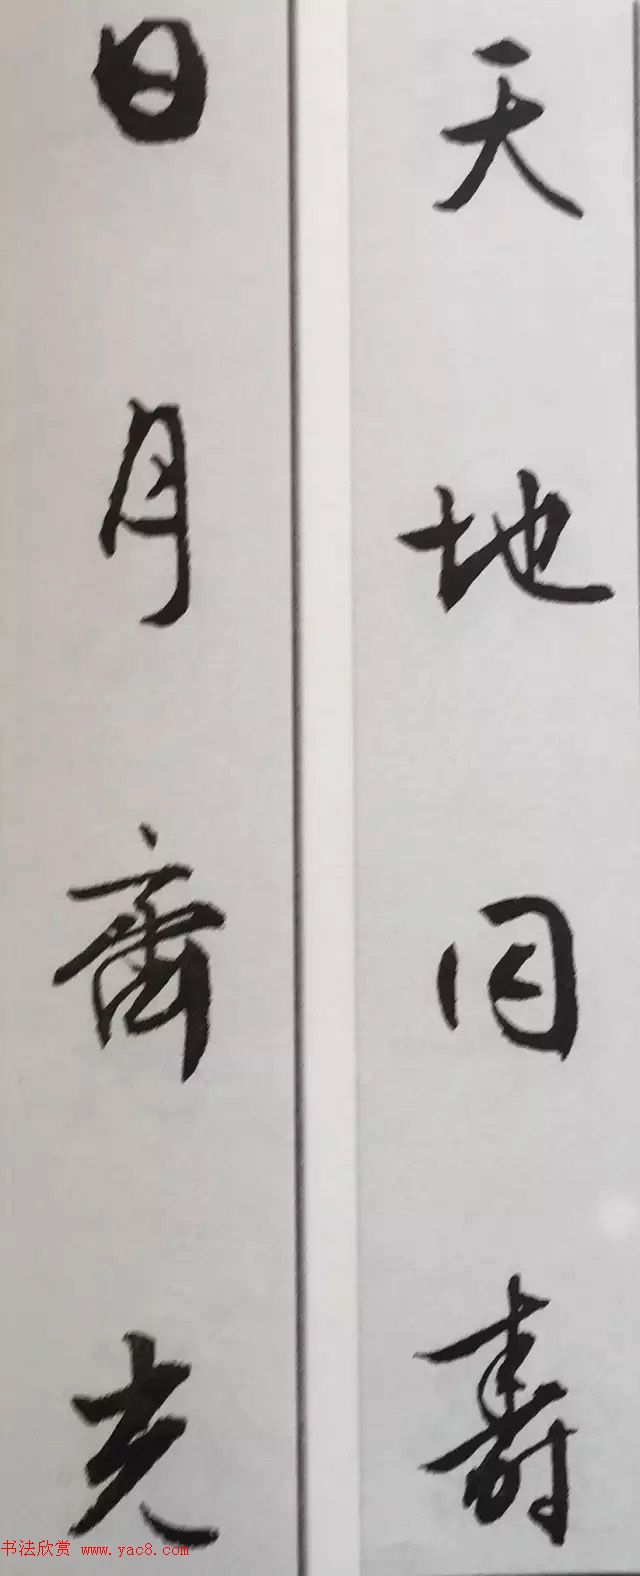 天地同壽
日月齊光
书法欣赏 www.yac8.com